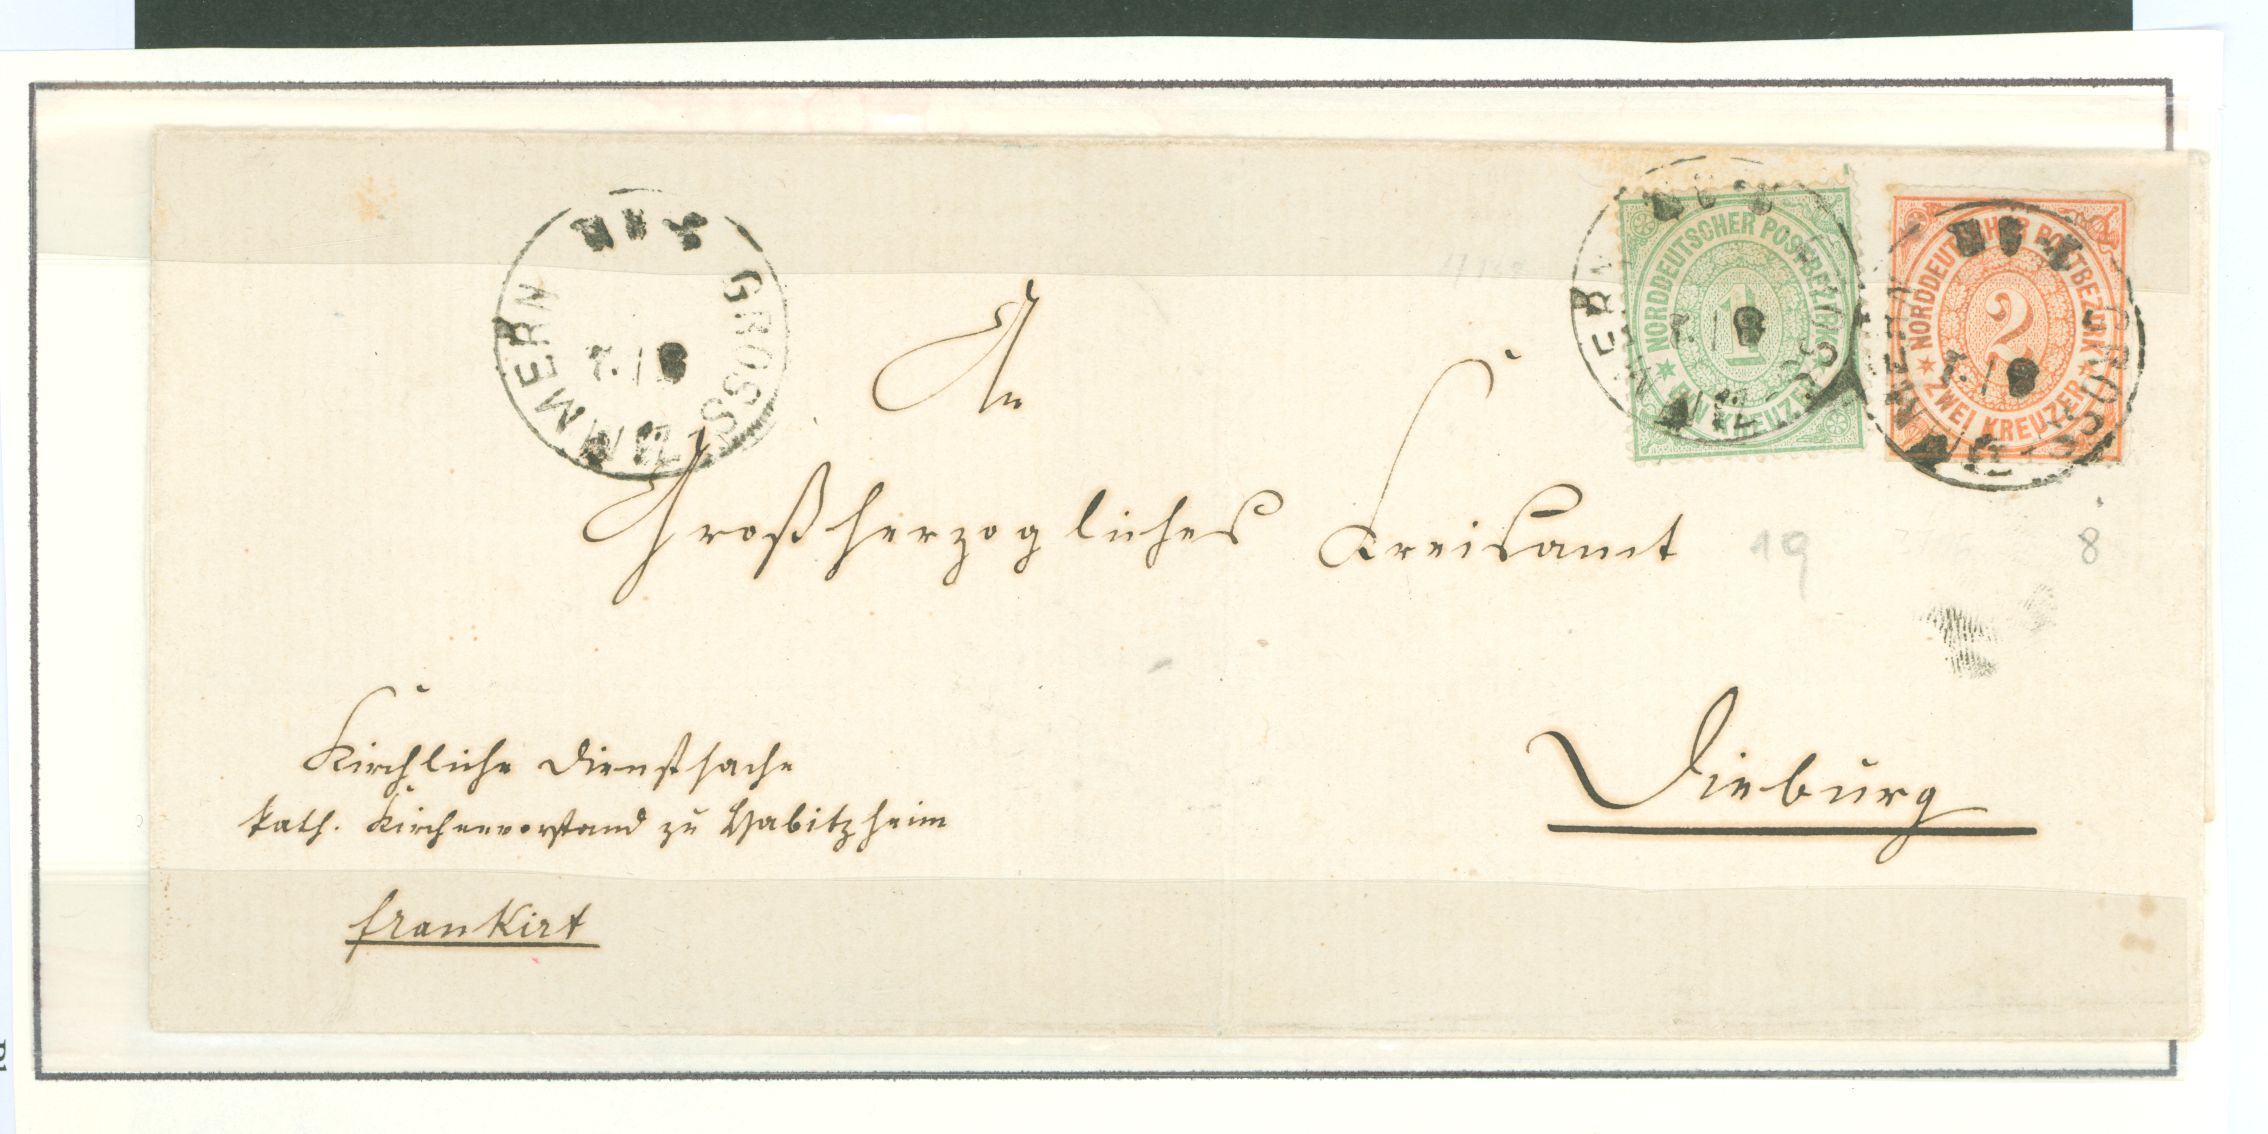 GROSS-ZIMMERN
NORDDEUTSCHER POSTBEZIRK
1
EIN KREUZER
GROSS-ZIMMERN
NORDDEUTSCHER POSTBEZIRK
2
ZWEI KREUZER
GROSS-ZIMMERN
An
Großherzogliches Kreisamt
19
8
Dieburg
Kirchliche Dienstsache
kath. Kirchenvorstand zu Habitzheim
frankirt